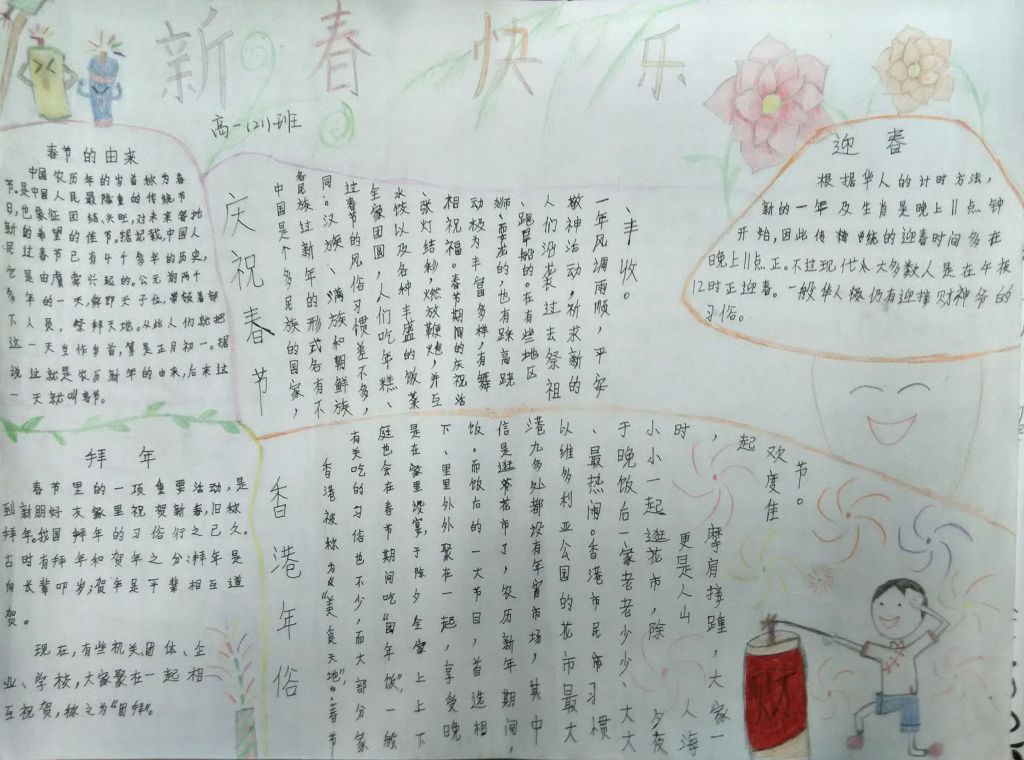 新春快乐
高一(21)班
春节的由来
中国农历年的岁首称为春
节。是中国人民最隆重的传统节
日,也象征团结、兴旺,对未来寄托
新的希望的佳节。据记载,中国人
民过春节已有4千多年的历史,
它是由虞舜兴起的。公元前两千
多年的一天,舜即天子位,带领着部
下人员,祭拜天地。从此人们就把
这一天当作岁首,算是正月初一。据
说这就是农历新年的由来,后来这
一天就叫春节。
庆祝春节
中国是个多民族的国家,
各民族过新年的形式各有不
同。汉族、满族和朝鲜族
过春节的风俗习惯差不多,
全家团圆,人们吃年糕、
水饺以及各种丰盛的饭菜
、张灯结彩,燃放鞭炮,并互
相祝福。春节期间的庆祝活
动极为丰富多样,有舞
狮、耍龙的,也有踩高跷
、跑旱船的。在有些地区
人们沿袭过去祭祖
敬神活动,祈求新的
一年风调雨顺,平安
、丰收。
迎春
根据华人的计时方法,
新的一年及生肖是晚上11点钟
开始,因此传统的迎春时间多在
晚上11点正。不过现代大多数人是在午夜
12时正迎春。一般华人仍有迎接财神爷的
习俗。
拜年
春节里的一项重要活动,是
到新朋好友家里祝贺新春,旧称
拜年。我国拜年的习俗行之已久。
古时有拜年和贺年之分:拜年是
向长辈叩岁;贺年是平辈相互道
贺。
现在,有些机关、团体、企
业、学校,大家聚在一起相
互祝贺,称之为"团拜"。
香港年俗
香港被称为"美食天地",春节
有关吃的习俗也不少,而大部分家
庭也会在春节期间吃"团年饭",一般
是在家里设宴,于除夕全家上上下
下、里里外外聚在一起,享受晚
饭。而饭后的一大节目,首选相
信是逛花市了,农历新年期间,
港九多处都设有年宵市场,其中
以维多利亚公园的花市最大
、最热闹。香港市民习惯
于晚饭后一家老老少少、大大
小小一起逛花市,除夕夜
时,更是人山人海
,摩肩接踵,大家一
起欢度佳
节。
财